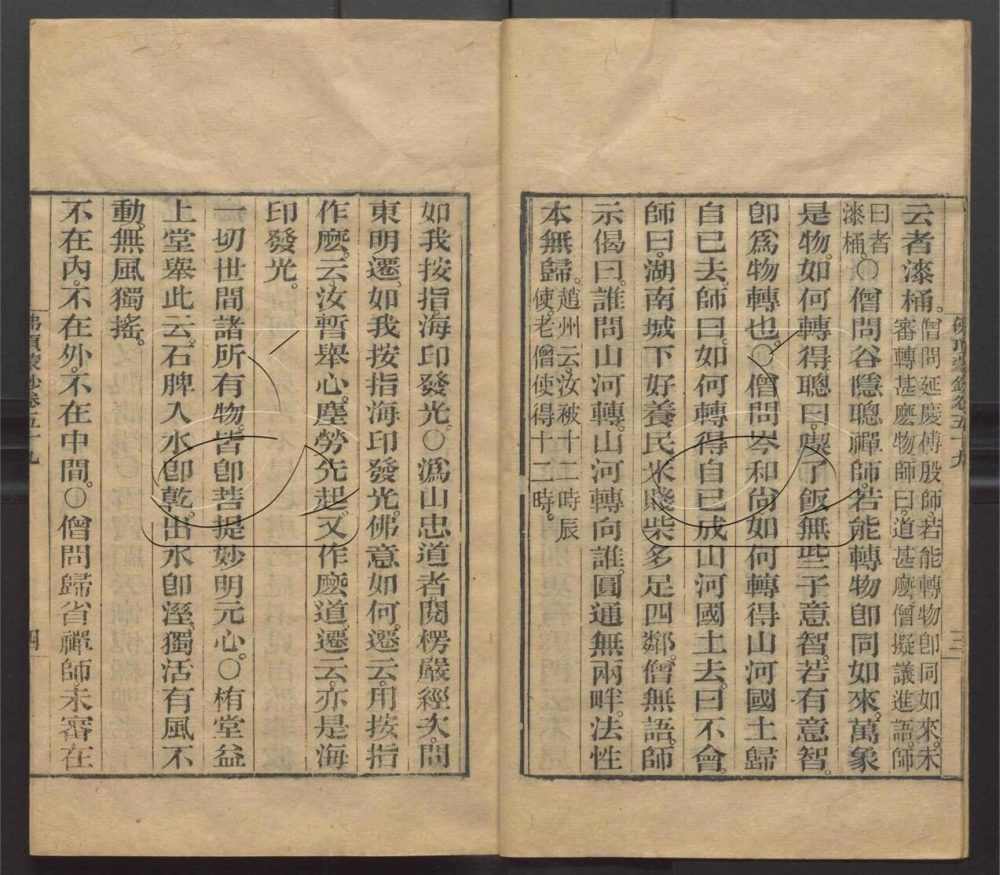 云者漆桶。僧問延慶傅殷師。若能轉物卽同如來。未審轉甚麽物。師曰。道甚麽。僧擬議進語。師
曰者漆桶。〇僧問谷隱聰禪師。若能轉物卽同如來。萬象
是物。如何轉得。聰曰。喫了飯無些子意智。若有意智。
卽爲物轉也。〇僧問岑和尚如何轉得山河國土歸
自己去。師曰。如何轉得自己成山河國土去。曰不會。
師曰。湖南城下好養民。米賤柴多足四鄰。僧無語。師
示偈曰。誰問山河轉。山河轉向誰。圓通無兩畔。法性
本無歸。趙州云。汝被十二時辰使。老僧使得十二時。
如我按指。海印發光。〇潙山忠道者。閱楞嚴經次。問
東明遷。如我按指海印發光。佛意如何。遷云。用按指
作麽。云。汝暫舉心。塵勞先起。又作麽道。遷云。亦是海
印發光。
一切世間諸所有物。皆卽菩提妙明元心。〇栯堂益
上堂舉此云。石脾入水卽乾。出水卽溼。獨活有風不
動。無風獨搖。
不在內。不在外。不在中間。〇僧問歸省禪師。未審在
佛頂蒙鈔卷五十九
四